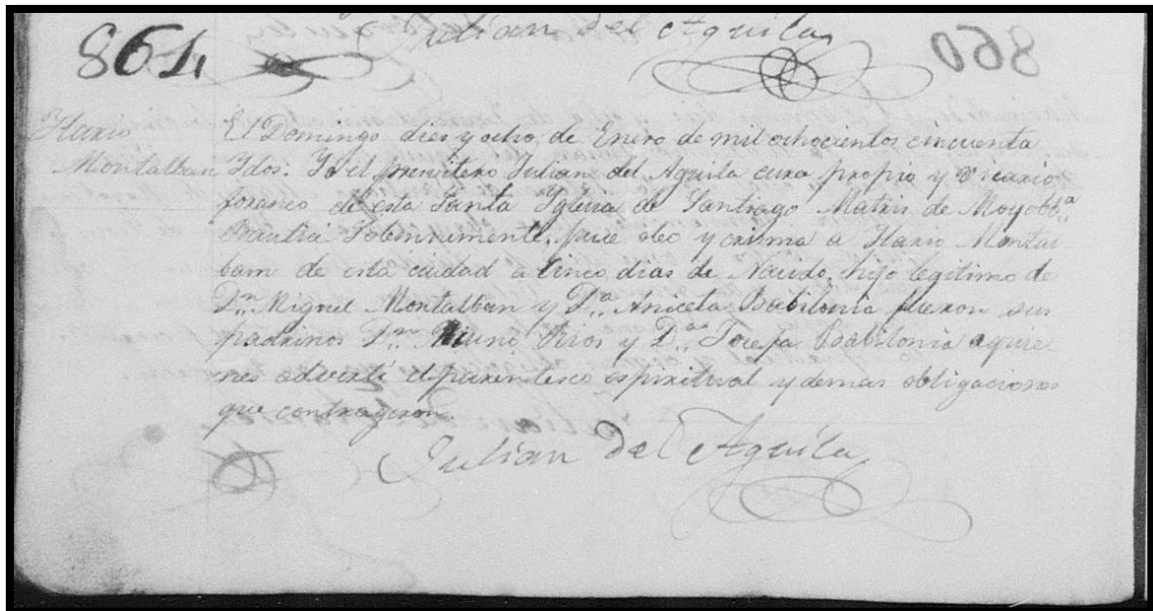 Julian del Aguila
861,
860
Ilario
Montalban
El Domingo dies y ocho de Enero de mil ochocientos cincuenta
Idos. Yo el presvitero Julian del Aguila cura propio y Vicario
foraneo de esta Santa Iglecia de Santiago Matris de Moyobb.ª
Bauticé Solennimente, puce oleo y crisma a Ilario Montal
bam de esta cuidad a cinco dias de Nacido, hijo legitimo de
D.n Miguel Montalban y D.ª Aniceta Babilonia fueron sus
padrinos D.n Bruno Rios y D.ª Josefa Babilonia aquie
nes advertí el parentesco espiritual y demas obligaciones
que contrageron.
Julian Del Aguila